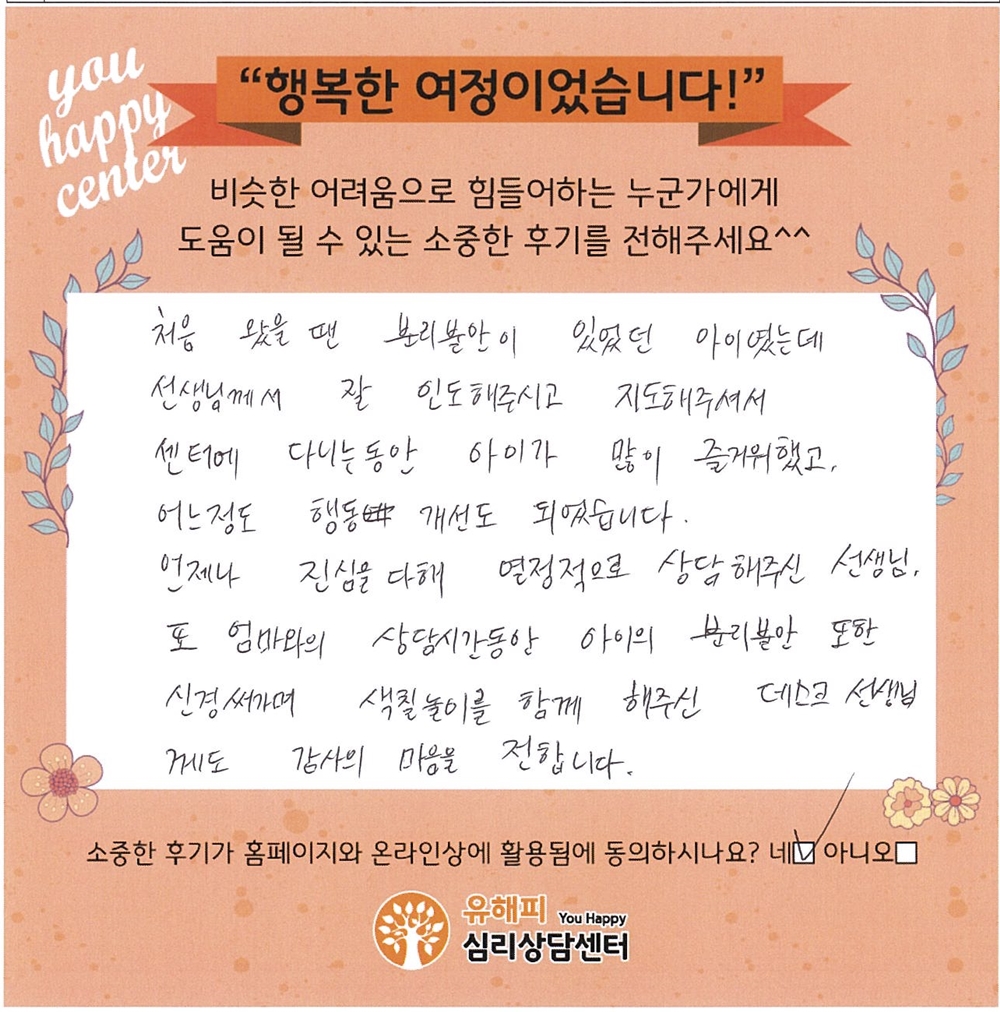 you
happy
center
“행복한 여정이었습니다!”
비슷한 어려움으로 힘들어하는 누군가에게
도움이 될 수 있는 소중한 후기를 전해주세요^^
처음 왔을 땐 분리불안이 있었던 아이였는데
선생님께서 잘 인도해주시고 지도해주셔서
센터에 다니는동안 아이가 많이 즐거워했고,
어느정도 행동 개선도 되었습니다.
언제나 진심을 다해 열정적으로 상담해주신 선생님,
또 엄마와의 상담시간동안 아이의 분리불안 또한
신경써가며 색칠놀이를 함께 해주신 데스크 선생님
께도 감사의 마음을 전합니다.
소중한 후기가 홈페이지와 온라인상에 활용됨에 동의하시나요? 네☑ 아니오☐
유해피 You Happy
심리상담센터